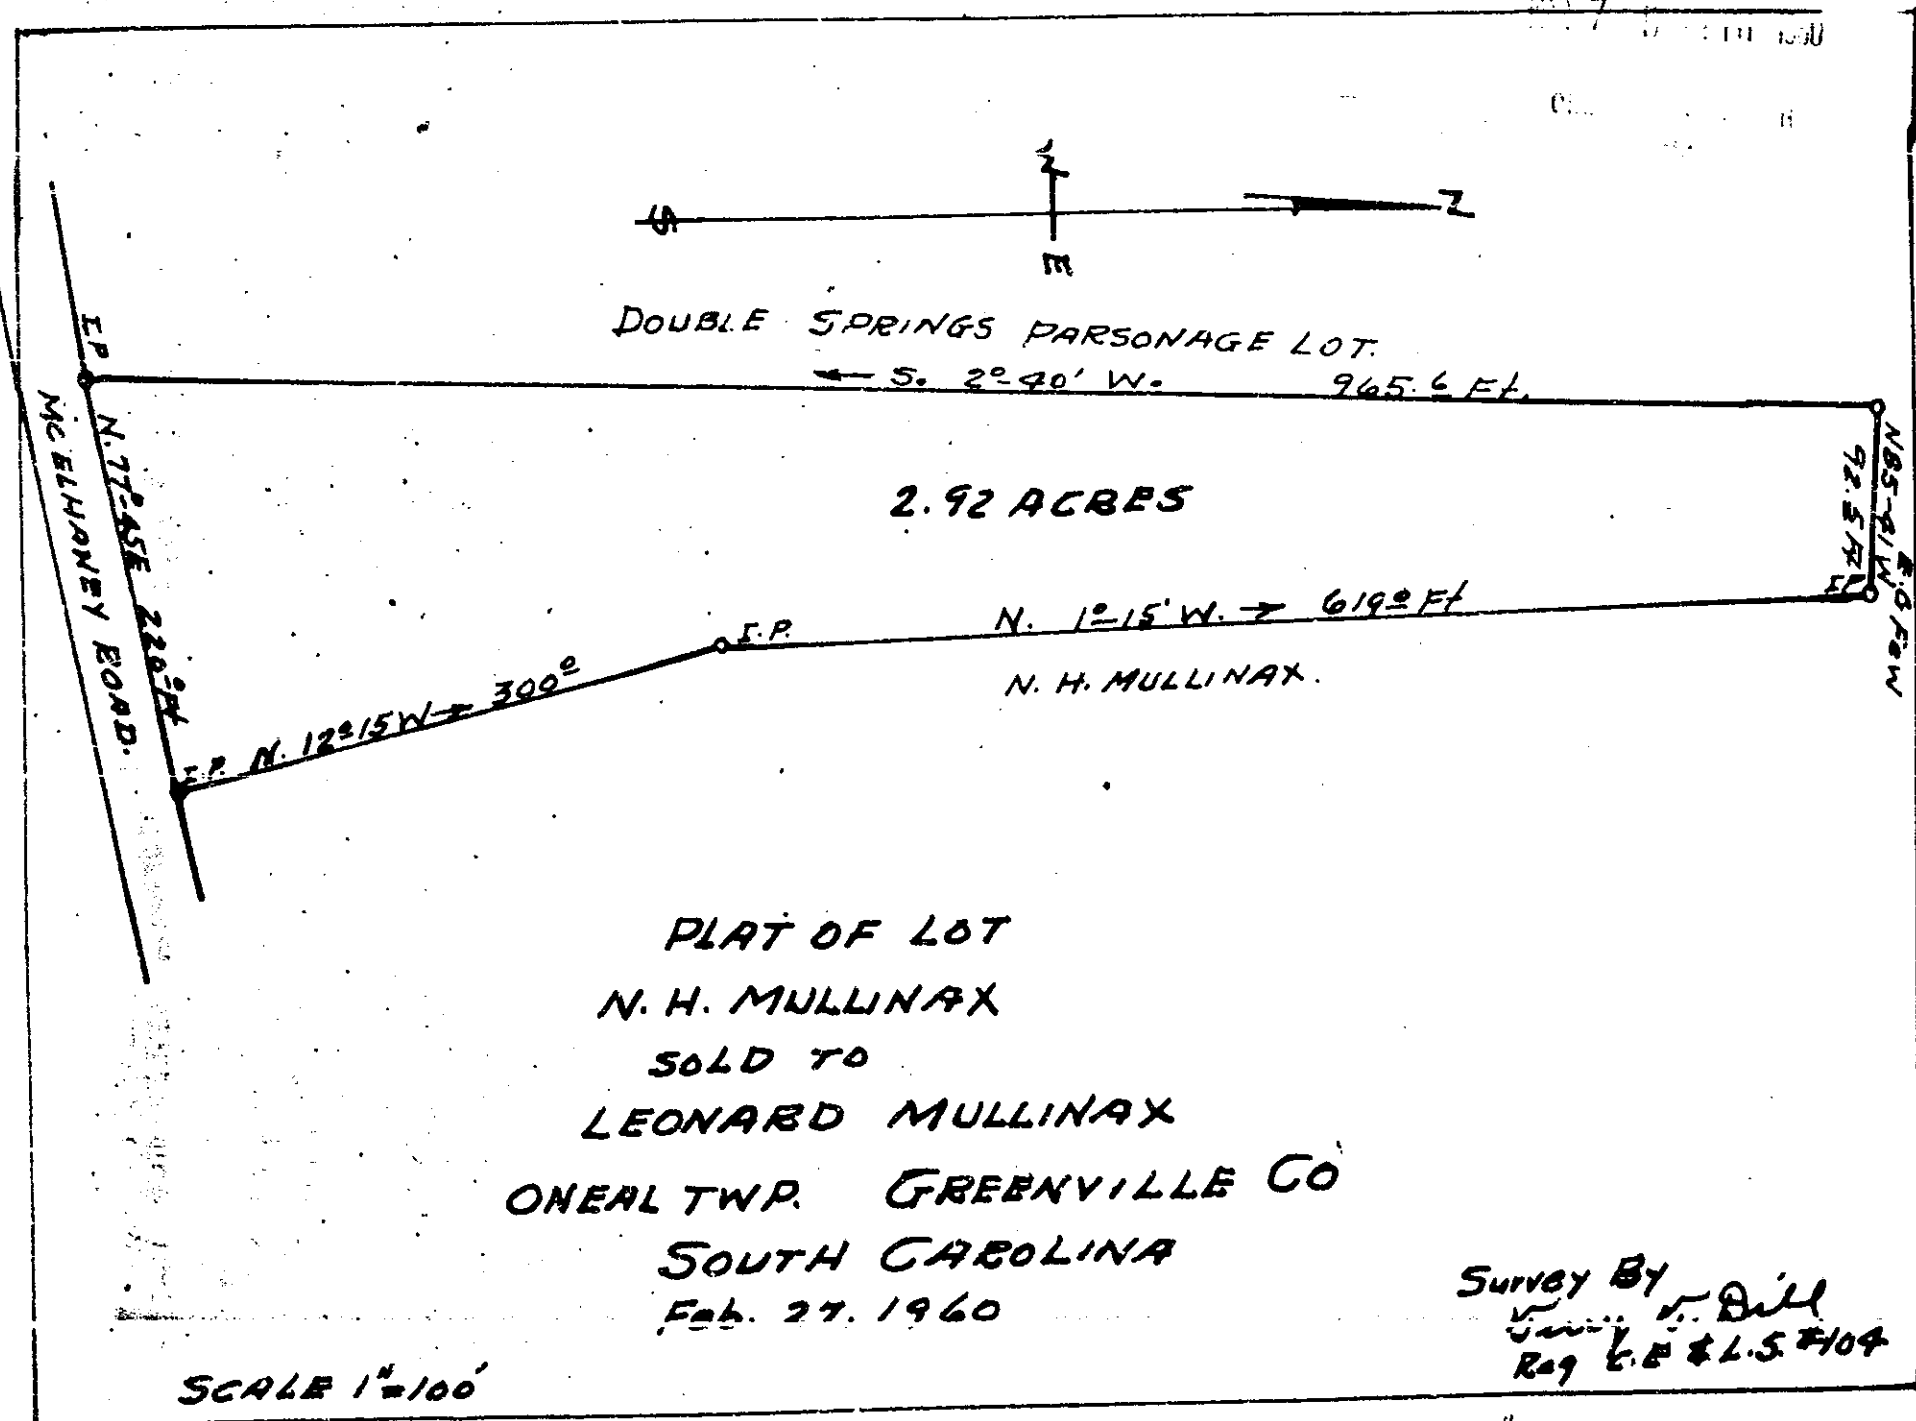 W
S N
E
DOUBLE SPRINGS PARSONAGE LOT.
← S. 2°-40' W. 965.6 Ft.
I.P
N. 77°-45E 220.0 Ft
MC ELHANEY ROAD.
2.92 ACRES
N85-41W
92.5 Ft
E.C Few
I.P
N. 1°-15' W. → 619.0 Ft
I.P.
N. H. MULLINAX.
I.P. N. 12°15W → 300.0
PLAT OF LOT
N. H. MULLINAX
SOLD TO
LEONARD MULLINAX
ONEAL TWP. GREENVILLE CO
SOUTH CAROLINA
Feb. 27. 1960
Survey By
Dill
Reg C.E & L.S. #104
SCALE 1"=100'